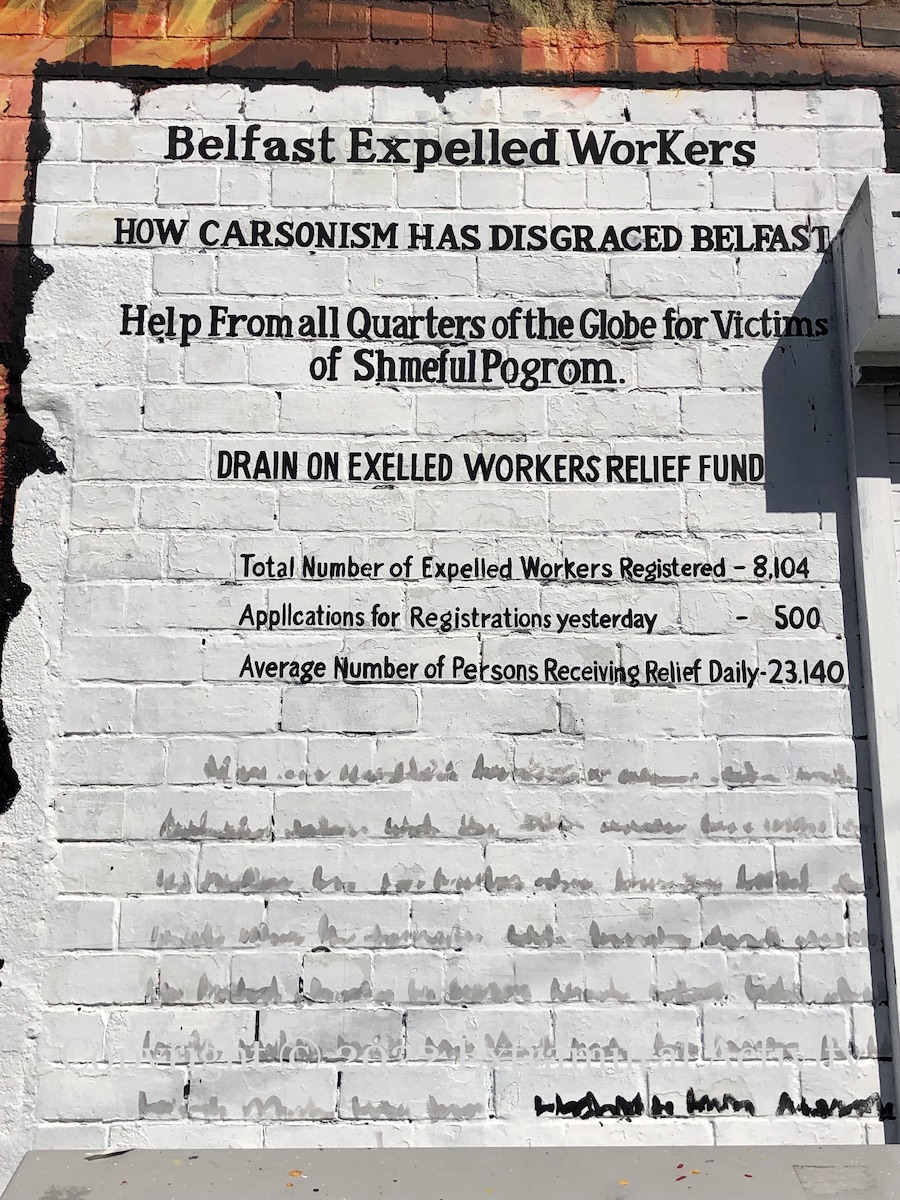 Belfast Expelled WorKers
HOW CARSONISM HAS DISGRACED BELFAST
Help From all Quarters of the Globe for Victims
of Shmeful Pogrom.
DRAIN ON EXELLED WORKERS RELIEF FUND
Total Number of Expelled Workers Registered - 8,104
Applications for Registrations yesterday - 500
Average Number of Persons Receiving Relief Daily-23.140
Copyright ©